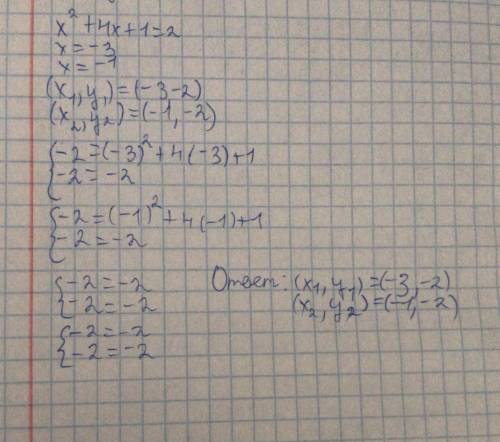 x² + 4x + 1 = 2
x = -3
x = -1
(x₁, y₁) = (-3 -2)
(x₂, y₂) = (-1, -2)
{ -2 = (-3)² + 4(-3) + 1
{ -2 = -2
{ -2 = (-1)² + 4(-1) + 1
{ -2 = -2
{ -2 = -2
{ -2 = -2
{ -2 = -2
{ -2 = -2
Ответ: (x₁, y₁) = (-3, -2)
(x₂, y₂) = (-1, -2)